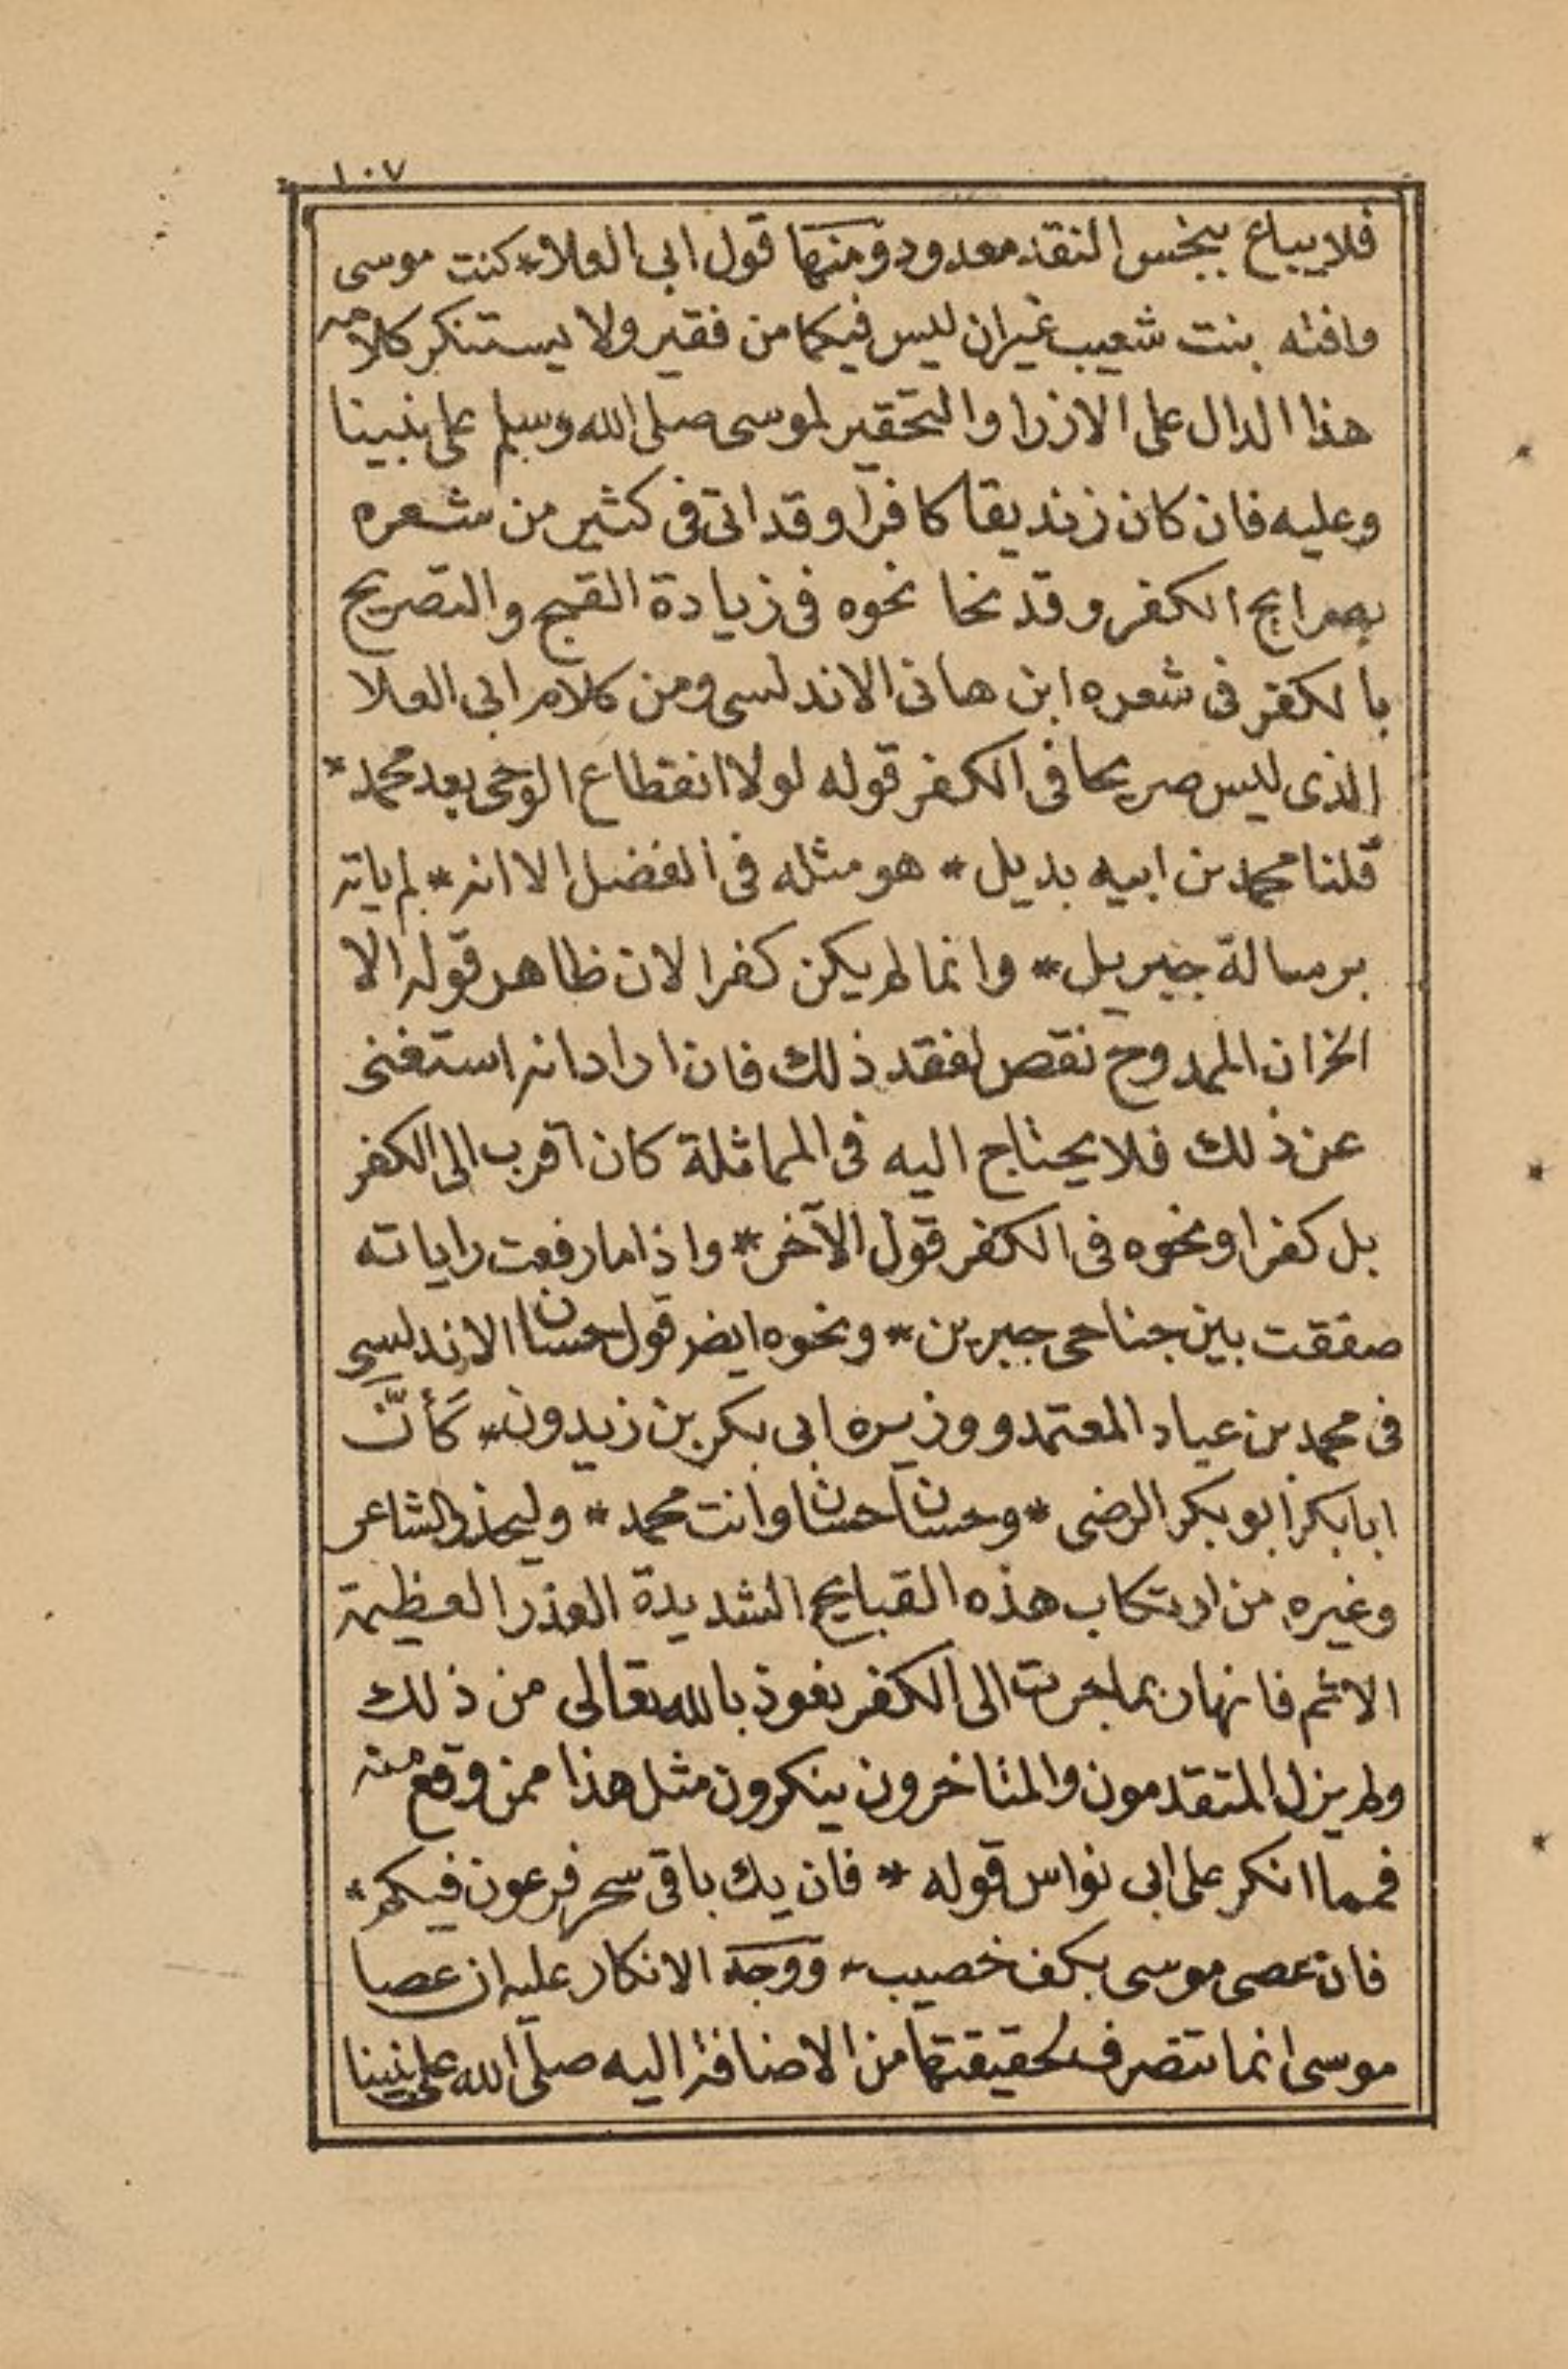 ١٠٧
فلا يباع ببخس النقد معدود ومنها قول ابى العلا * كنت موسى
وافته بنت شعيب غير ان ليس فيكما من فقير ولا يستنكر كلامه
هذا الدال على الازرا والتحقير لموسى صلى الله وسلم على نبينا
وعليه فان كان زنديقا كافرا وقد اتى فى كثير من شعره
بصرايح الكفر وقد نحا نحوه فى زيادة القبح والتصريح
بالكفر فى شعره ابن هانى الاندلسى ومن كلام ابى العلا
الذى ليس صريحا فى الكفر قوله لولا انقطاع الوحى بعد محمد *
قلنا محمد من ابيه بديل * هو مثله فى الفضل الا انه * لم ياته
برسالة جبريل * وانما لم يكن كفرا لان ظاهر قوله الا
الخ ان الممدوح نقص لفقد ذلك فان اراد انه استغنى
عن ذلك فلا يحتاج اليه فى المماثلة كان اقرب الى الكفر
بل كفرا ونحوه فى الكفر قول الآخر * واذا ما رفعت راياته
صفقت بين جناحى جبرين * ونحوه ايض قول حسان الاندلسى
فى محمد بن عباد المعتمد ووزيره ابى بكر بن زيدون * كَأَنَّ
ابا بكر ابو بكر الرضى * وحسان حسان وانت محمد * وليحذر الشاعر
وغيره من ارتكاب هذه القبايح الشديدة العذر العظيمة
الاثم فانها ربما جرت الى الكفر نعوذ بالله تعالى من ذلك
ولم يزل المتقدمون والمتاخرون ينكرون مثل هذا ممن وقع منه
فمما انكر على ابى نواس قوله * فان يك باقى سحر فرعون فيكم *
فان عصى موسى بكف خصيب * ووجه الانكار عليه ان عصا
موسى انما تتصرف لحقيقتها من الاضافة اليه صلى الله على نبينا